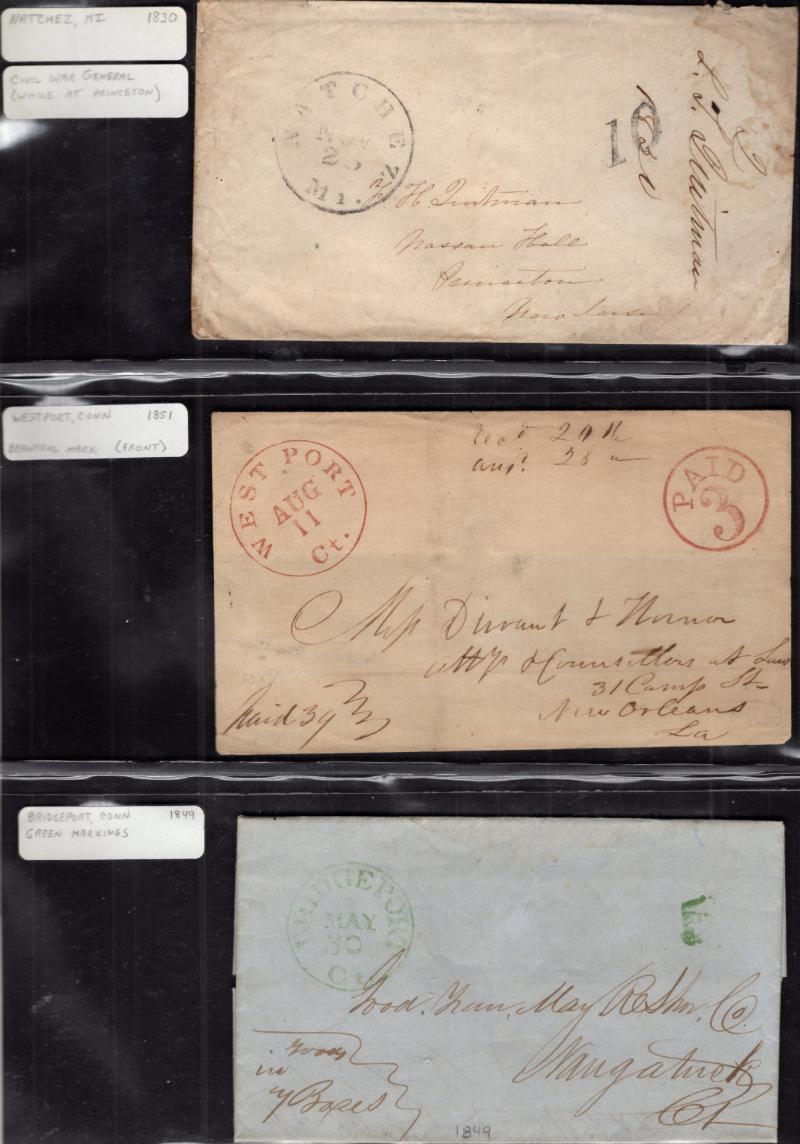 NATCHEZ, MI 1830
CIVIL WAR GENERAL
(WHILE AT PRINCETON)
NATCHEZ
Mi.
10
Quitman
H Quitman
Nassau Hall
Princeton
New Jersey
WESTPORT, CONN 1851
BEAUTIFUL MARK (FRONT)
WEST PORT
AUG
11
Ct.
PAID
3
Recd 20th
ansd. 28
Durant & Hornor
& Counsellors at Law
31 Camp St
New Orleans
La
Paid 3
BRIDGEPORT, CONN 1849
GREEN MARKINGS
BRIDGEPORT
MAY
30
Ct.
Good. Man. Co.
Naugatuck
Ct
in
Boxes
1849